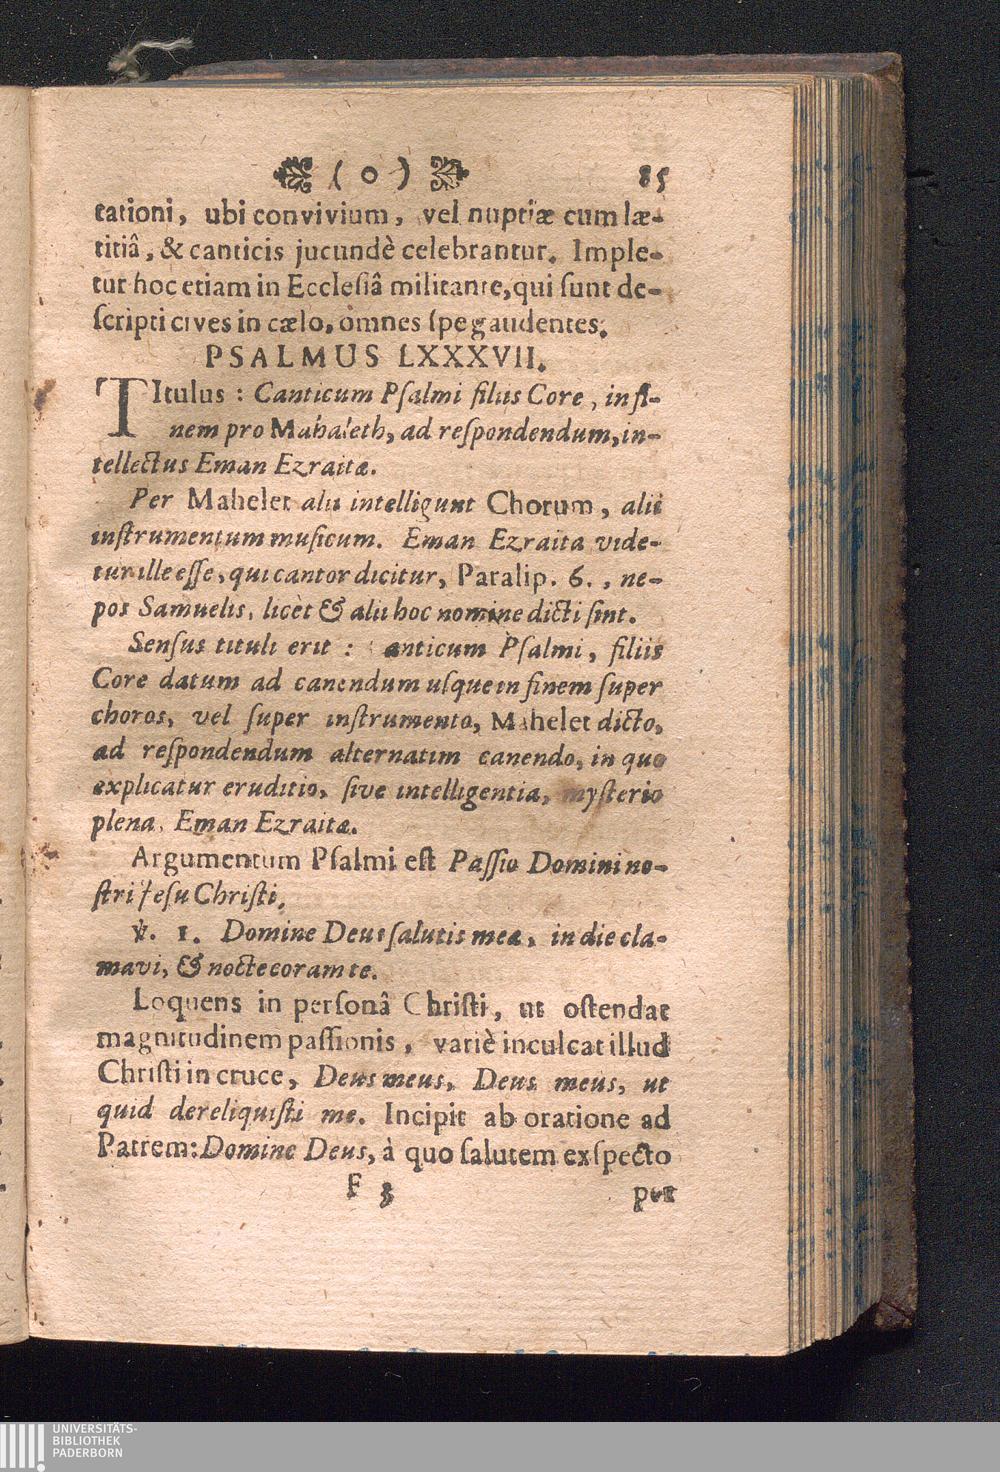 ( o ) 85
tationi, ubi convivium, vel nuptiæ cum læ-
titiâ, & canticis jucundè celebrantur. Imple-
tur hoc etiam in Ecclesiâ militante, qui sunt de-
scripti cives in cælo, omnes spe gaudentes.
PSALMUS LXXXVII.
TItulus : Canticum Psalmi filiis Core, in fi-
nem pro Mahaleth, ad respondendum, in-
tellectus Eman Ezraitæ.
Per Mahelet alii intelligunt Chorum, alii
instrumentum musicum. Eman Ezraita vide-
tur ille esse, qui cantor dicitur, Paralip. 6. , ne-
pos Samuelis, licèt & alii hoc nomine dicti sint.
Sensus tituli erit : anticum Psalmi, filiis
Core datum ad canendum usque in finem super
choros, vel super instrumento, Mahelet dicto,
ad respondendum alternatim canendo, in quo
explicatur eruditio, sive intelligentia, mysterio
plena, Eman Ezraitæ.
Argumentum Psalmi est Passio Domini no-
stri Jesu Christi.
℣. 1. Domine Deus salutis meæ, in die cla-
mavi, & nocte coram te.
Loquens in personâ Christi, ut ostendat
magnitudinem passionis, variè inculcat illud
Christi in cruce, Deus meus, Deus meus, ut
quid dereliquisti me. Incipit ab oratione ad
Patrem: Domine Deus, à quo salutem exspecto
F 3 per
UNIVERSITÄTS-
BIBLIOTHEK
PADERBORN